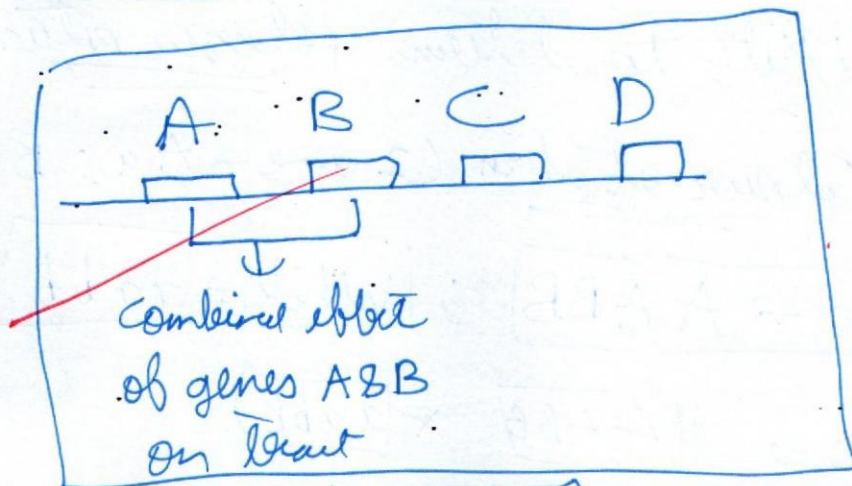 A B C D
combined effect
of genes A&B
on trait